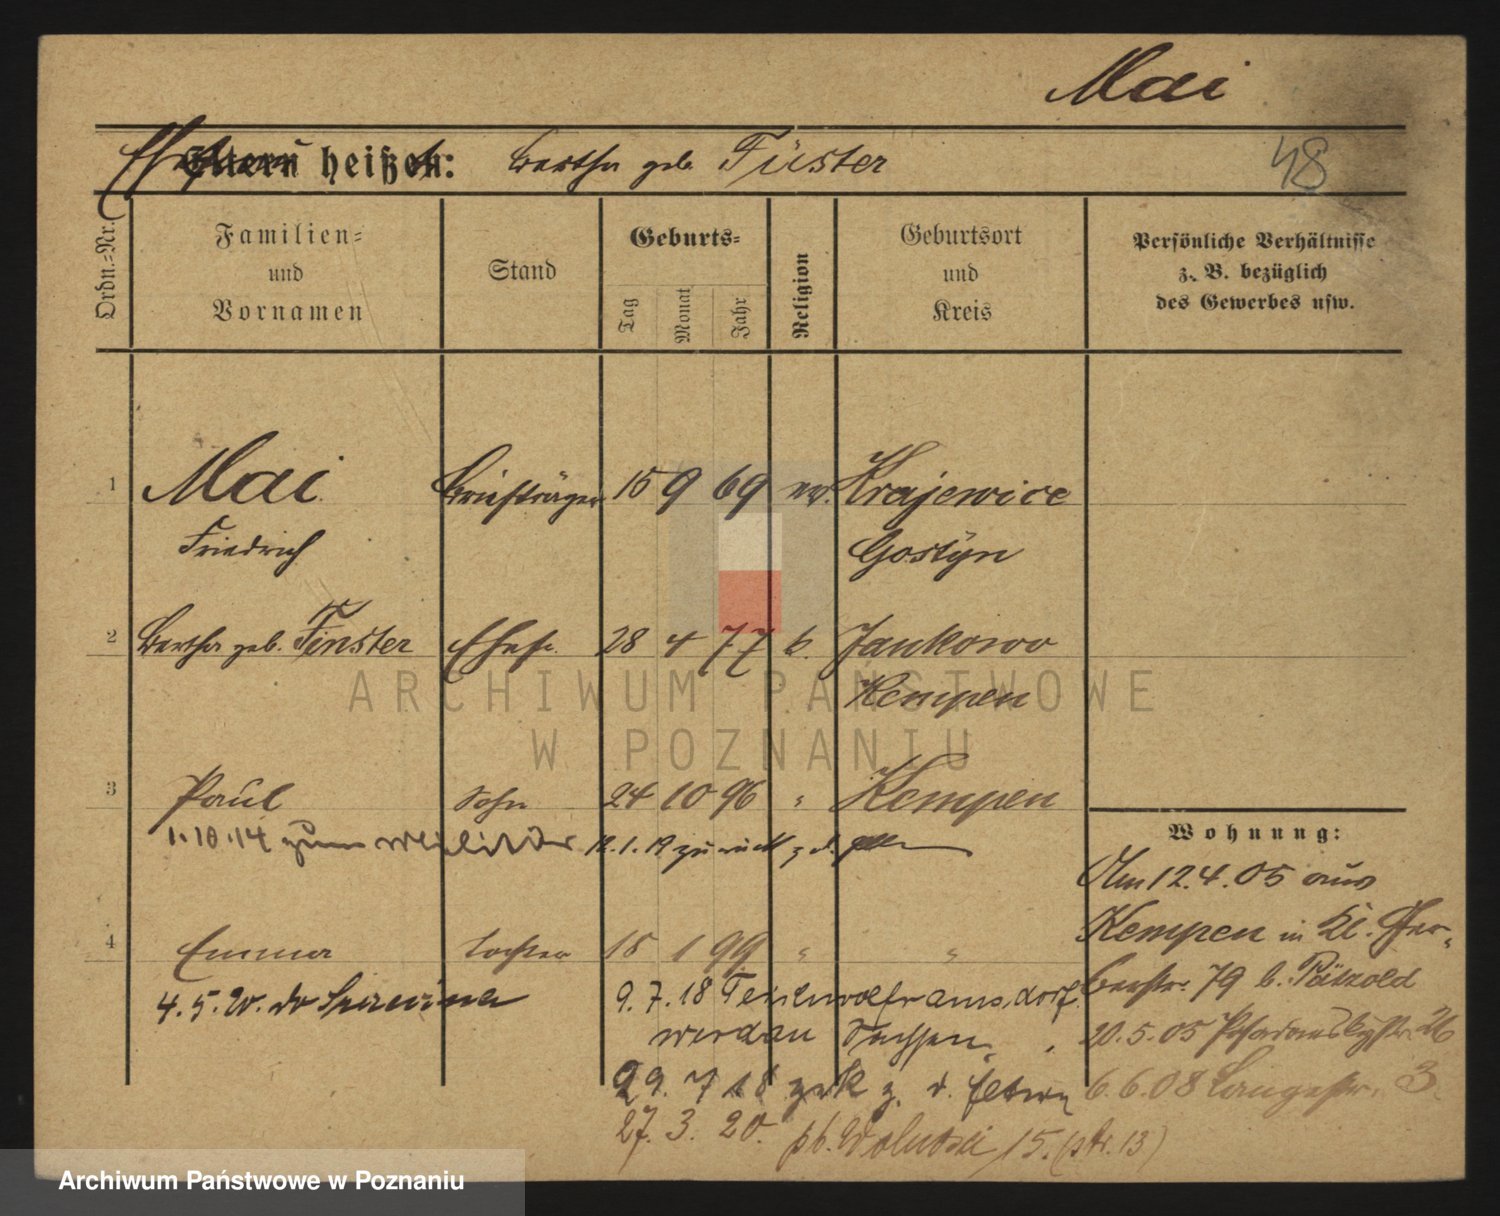 Mai
Eltern heißen: Bertha geb. Füster
48
Ordn.=Nr.
Familien=
und
Vornamen
Stand
Geburts=
Tag
Monat
Jahr
Religion
Geburtsort
und
Kreis
Persönliche Verhältnisse
z. B. bezüglich
des Gewerbes usw.
1 Mai Briefträger 15 9 69 ev. Krajewice
Friedrich Gostÿn
2 Bertha geb. Finster Ehefr. 28 4 77 k. Jankowo
Kempen
3 Paul Sohn 24 10 96 " Kempen
1.10.14 zum Militär 12.1.19 zurück z. d.
4 Emma Tochter 18 1 99 " "
4.5.20.
9.7.18 
werdau Sachsen.
29.7 18 zurk z. d. Eltern
27.3.20. 15. (ptr. 13)
Wohnung:
Am 12.4.05 aus
Kempen in Kl. Ger-
berstr. 79 b. Pätzold
20.5.05 26
6.6.08 Langestr. 3.
ARCHIWUM PAŃSTWOWE
W POZNANIU
Archiwum Państwowe w Poznaniu